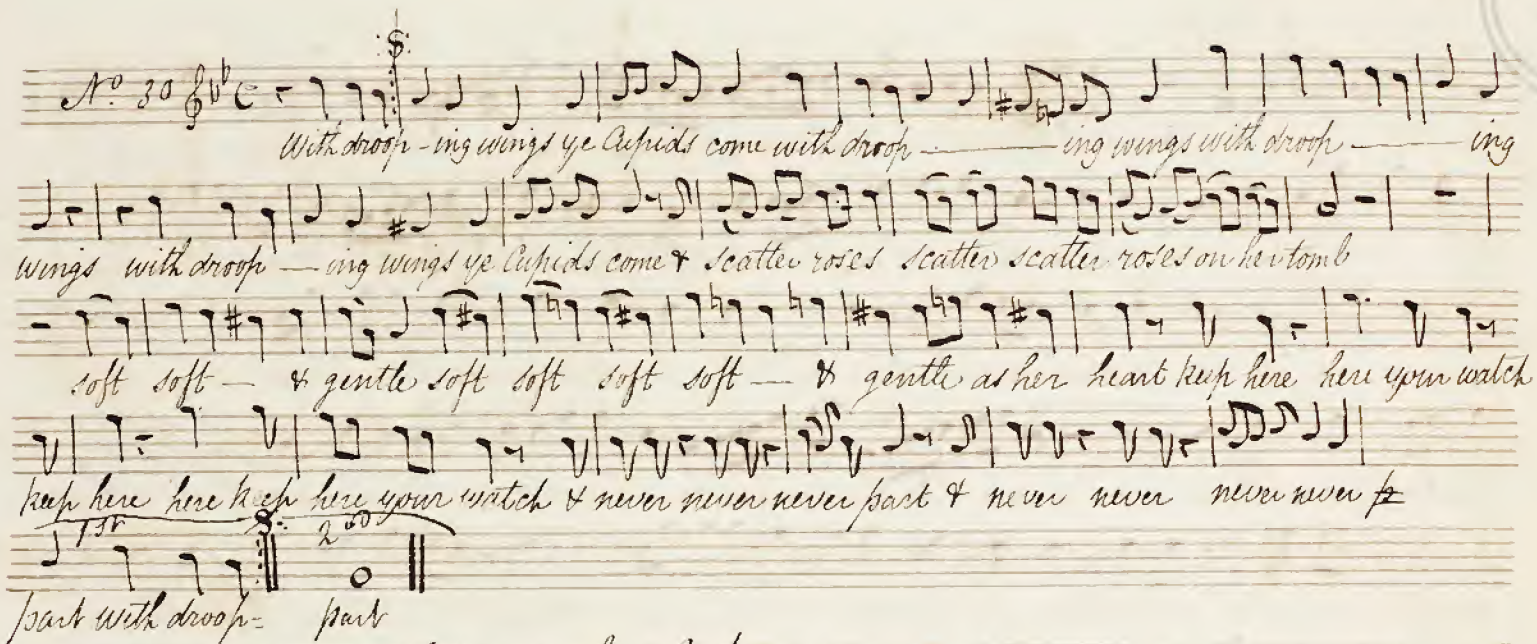 No. 30
With droop-ing wings ye Cupids come with droop — ing wings with droop — ing
wings with droop — ing wings ye Cupids come & scatter roses scatter scatter roses on her tomb
soft soft — & gentle soft soft soft soft — & gentle as her heart keep here here your watch
keep here here keep here your watch & never never never part & never never never never
1st 2nd
part with droop- part